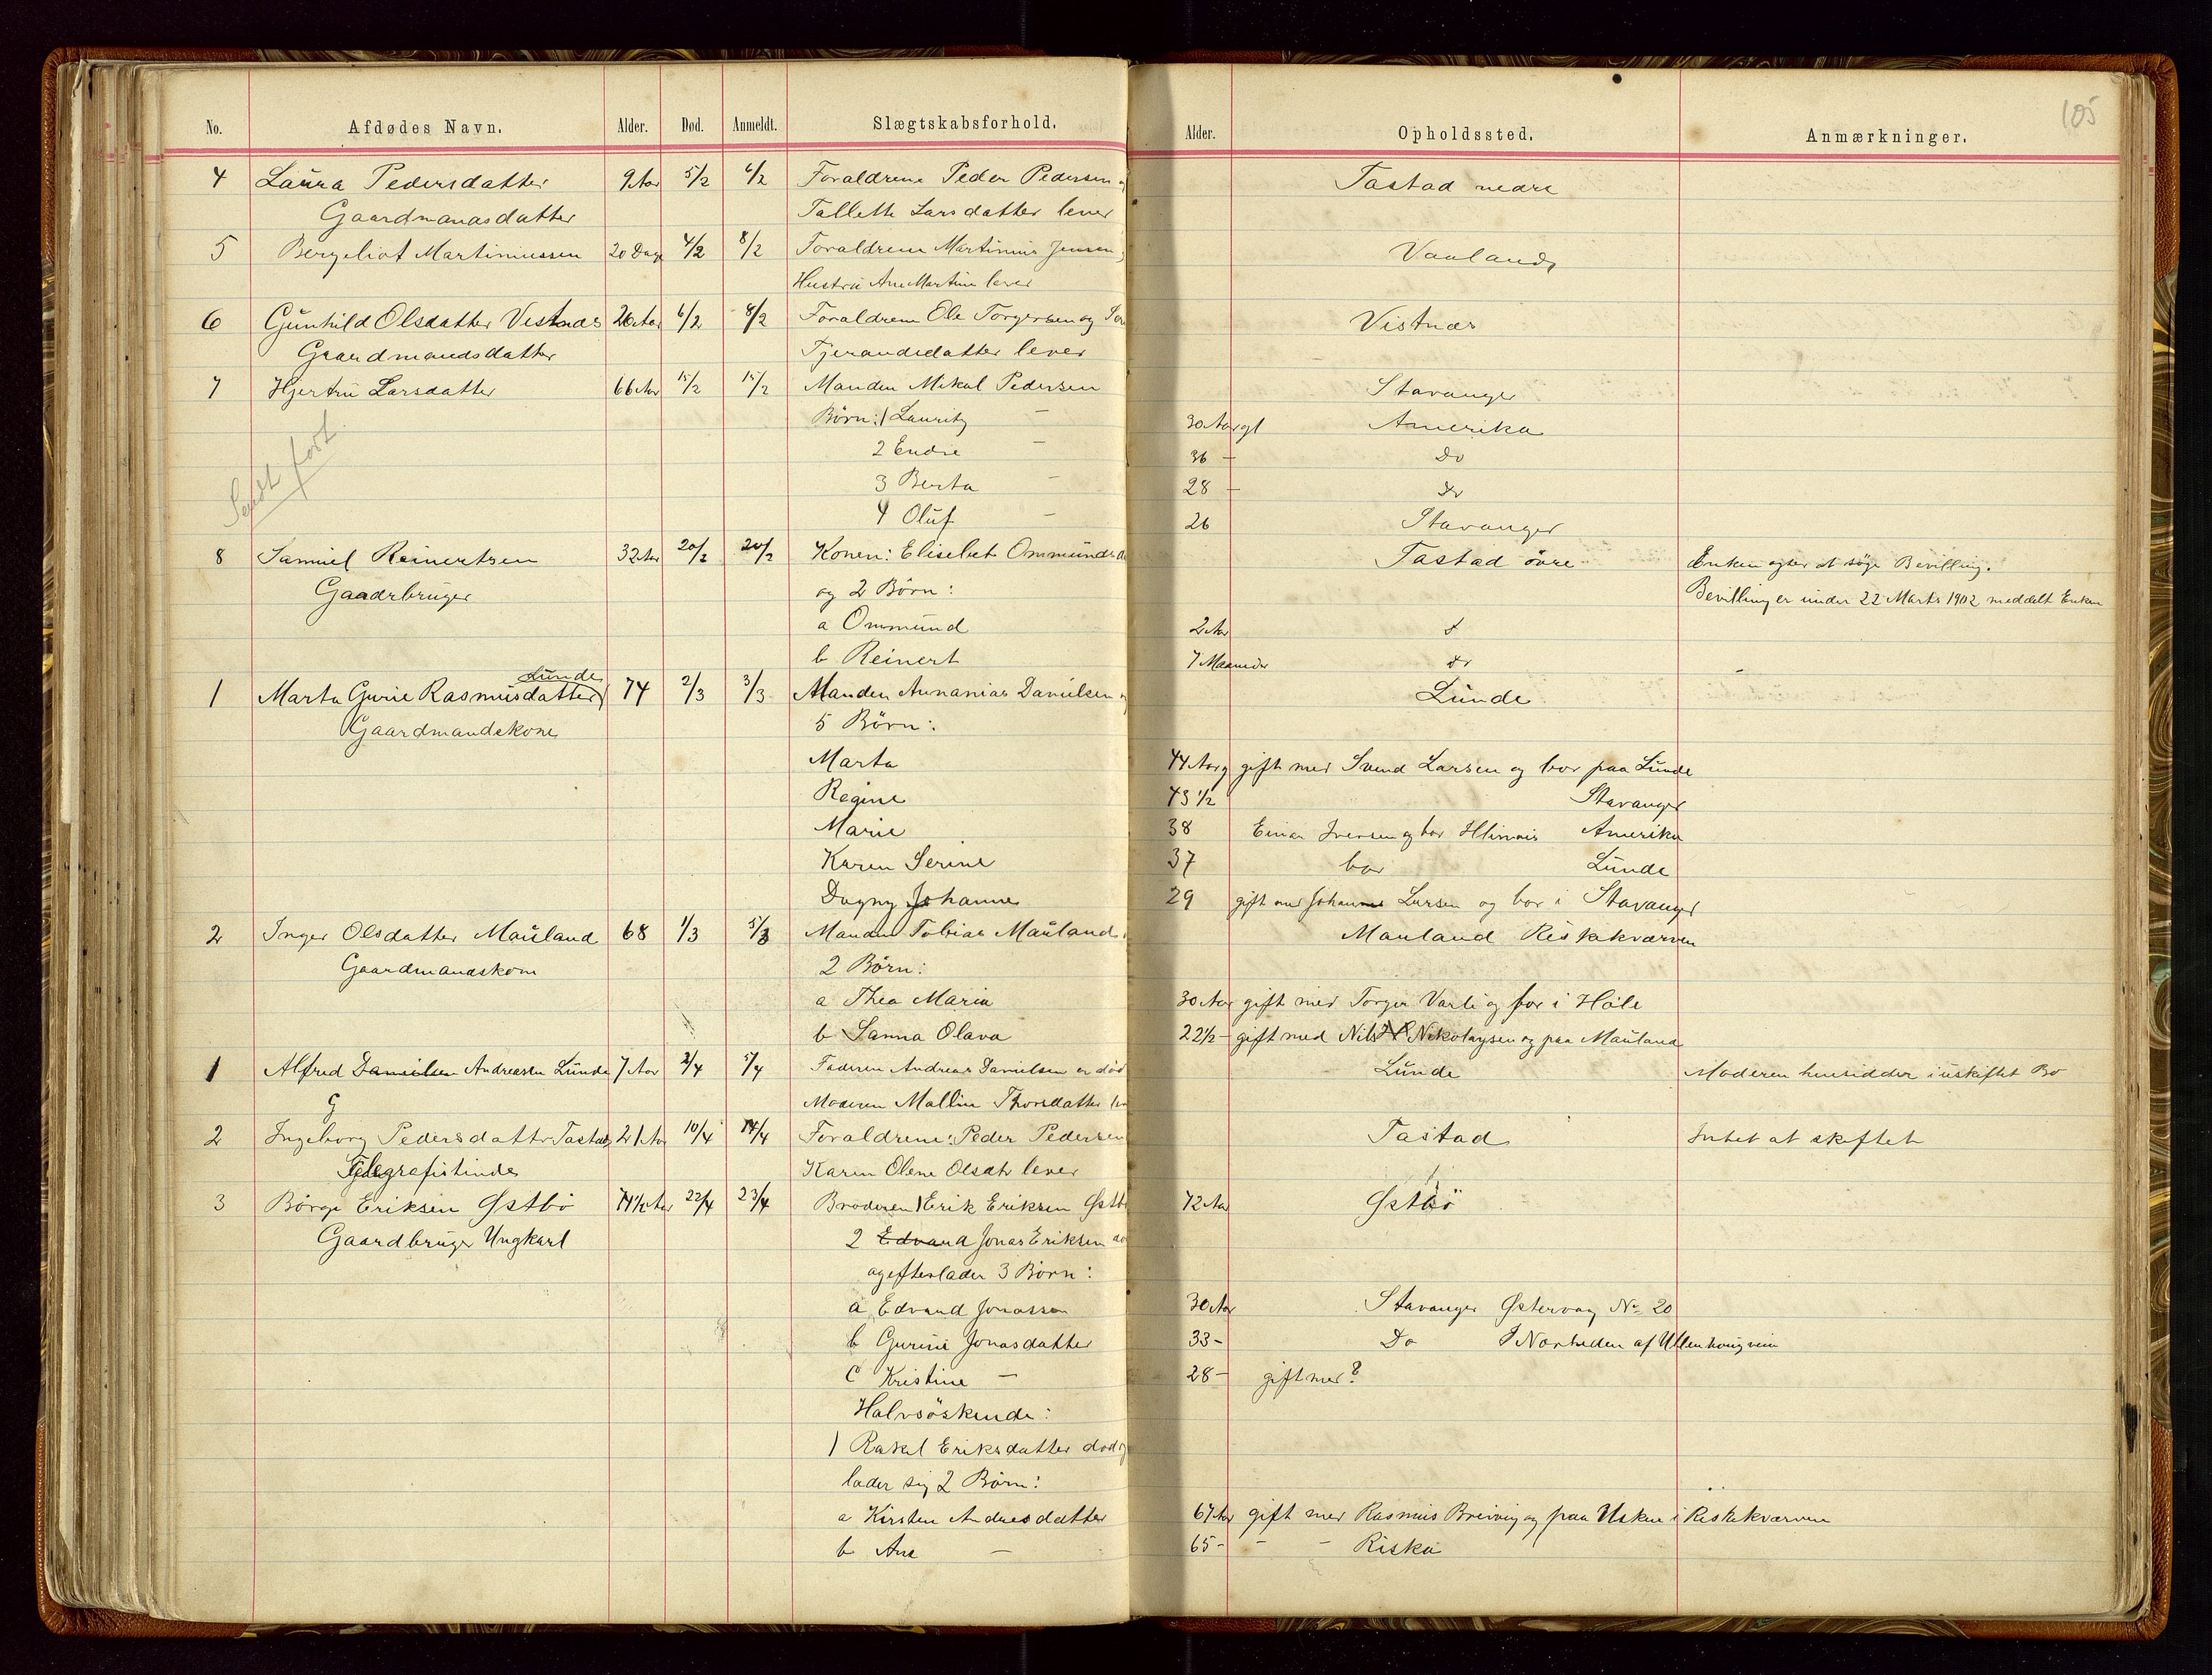 105
No. Afdødes Navn. Alder. Død. Anmeldt. Slægtskabsforhold. Alder. Opholdssted. Anmærkninger.
4 Laura Pedersdatter 9 Aar 5/2 6/2 Foraldrene Peder Pedersen Tastad nedre
Gaardmandsdatter Tallette Larsdatter lever
5 Bergeliot Martinussen 20 Dage 4/2 8/2 Foraldrene Martinius Jensen Vaaland
Hustru Ane Martine lever
6 Gunhild Olsdatter Vestnæs 26 Aar 6/2 8/2 Foraldrene Ole Torgersen og Vistnæs
Gaardmandsdatter Tjerandsdatter lever
7 Hjertru Larsdatter 66 Aar 15/2 15/2 Manden Mikal Pedersen Stavanger
Börn: 1 Lauritz — 30 Aar gl Amerika
2 Endre — 36 — Do
3 Berta — 28 — Do
4 Oluf — 26 Stavanger
Sendt fort
8 Samuel Reinertsen 32 Aar 20/2 20/2 Konen: Elisebet Ommunds Tastad övre Enken agter at søge Bevilling.
Gaadrbruger og 2 Börn: Bevilling er under 22 Marts 1902 meddelt Enken
a Ommund 2 Aar
b Reinert 7 Maaneder Do
Lunde
1 Marta Gurie Rasmusdatter 74 2/3 3/3 Manden Annanias Danielsen Lunde
Gaardmandskone 5 Börn:
Marta 44 Aar g gift med Svend Larsen og bor paa Lunde
Regine 43 1/2 Stavanger
Marie 38 Einar Iversen og bor Illinois Amerika
Karen Serine 37 bor Lunde
Dagny Johanne 29 gift med Johannes Larsen og bor i Stavanger
2 Inger Olsdatter Mauland 68 1/3 5/3 Manden Tobias Mauland Mauland Riskekværven
Gaardmandskone 2 Börn:
a Thea Maria 30 Aar gift med Torger Varli og bor i Höle
b Sanna Olava 22 1/2 - gift med Nils Nikolaysen og paa Mauland
1 Alfred Danielsen Andreassen Lunde 7 Aar 2/4 5/4 Faderen Andreas Danielsen er död Lunde Moderen hensidder i uskiftet Bo
G Moderen Malline Thorsdatter
2 Ingeborg Pedersdattr Tastad 21 Aar 10/4 14/4 Foraldrene: Peder Pedersen Tastad Intet at skiftet
Telegrafistinde Karen Olene Olsdtr lever
3 Börge Eriksen Østbö 74 1/2 Aar 22/4 23/4 Broderen 1 Erik Eriksen Østb 72 Aar Østbö
Gaardbruger Ungkarl 2 Edvard Jonas Eriksen dö
og efterlader 3 Börn:
a Edvard Jonassen 30 Aar Stavanger Østervag No 20
b Gurine Jonasdatter 33 - Do I Nærheden af Ullenhaugveien
c Kristine — 28 - gift med?
Halvsöskende:
1 Rakel Eriksdatter död
lader sig 2 Börn:
a Kirsten Andresdatter 67 Aar gift med Rasmus Breivig og paa Usken i Riskekværven
b Ane — 65 - - - Riska